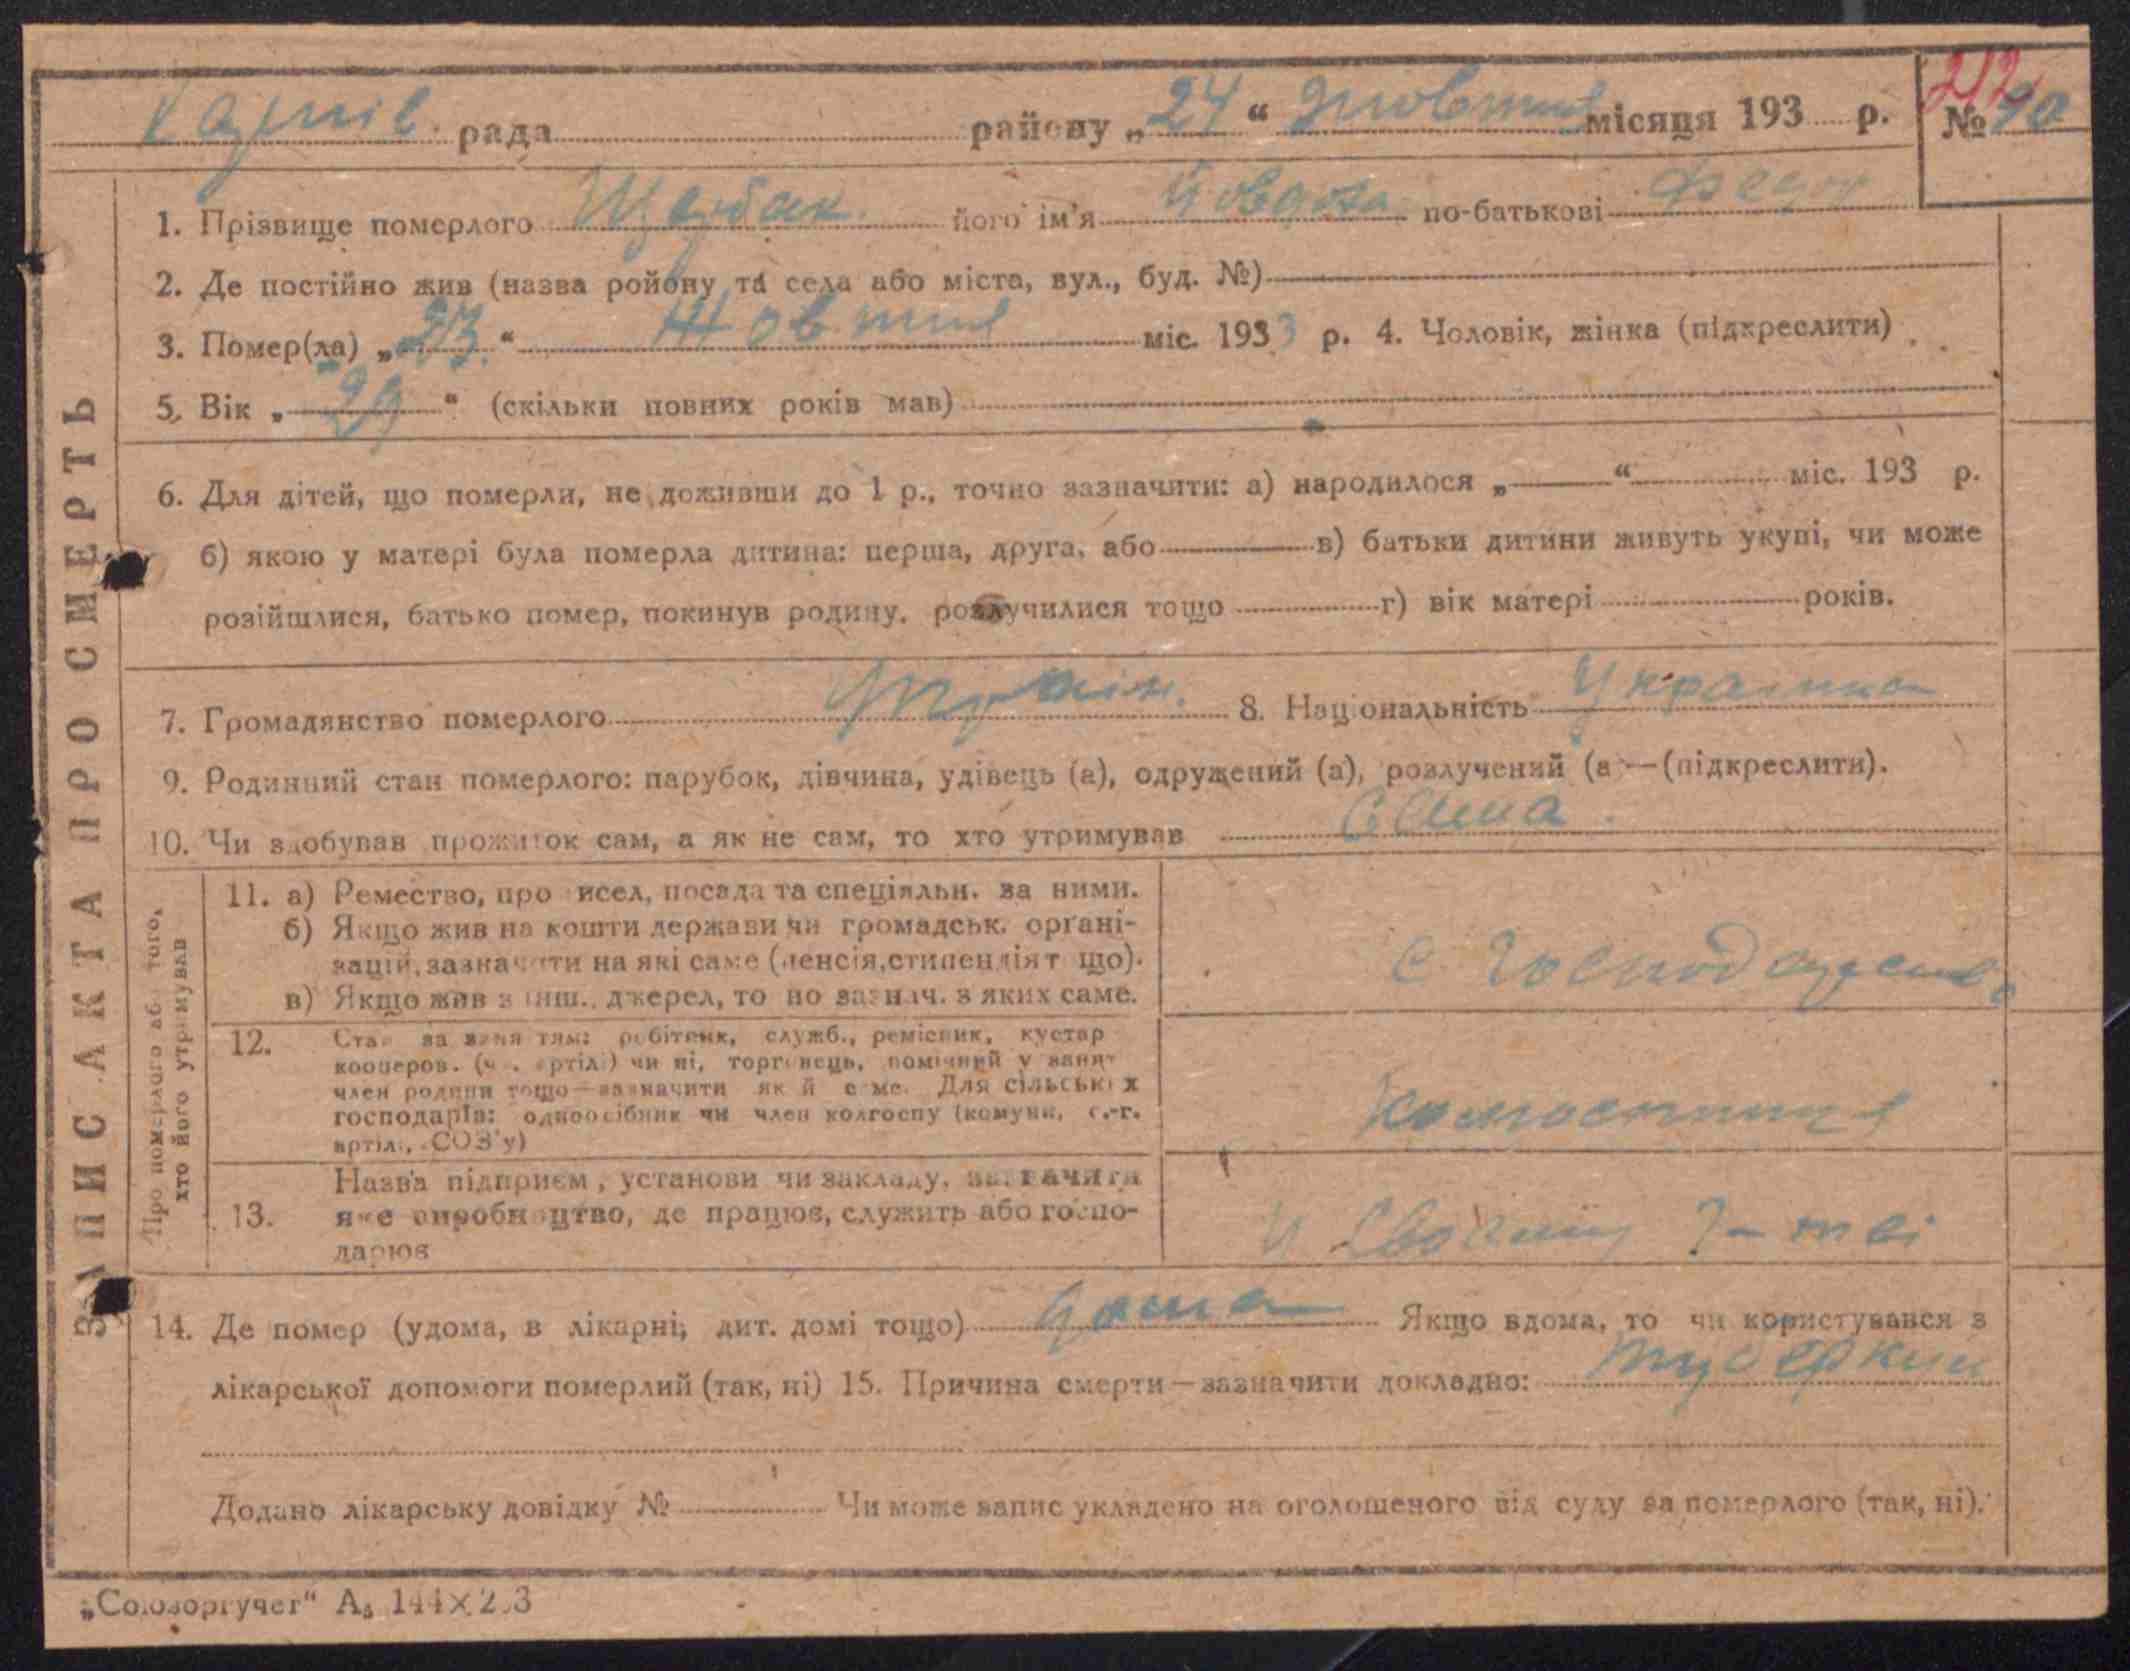 рада района „24“ жовтня місяця 193 р. № 90
212
ЗАПИС АКТА ПРО СМЕРТЬ
1. Прізвище померлого Щербак його ім'я Йовдоха по-батькові Федор
2. Де постійно жив (назва ройону та села або міста, вул., буд. №)
3. Помер(ла) „23.“ Жовтня міс. 1933 р. 4. Чоловік, жінка (підкреслити)
5. Вік „29“ (скільки повних років мав)
6. Для дітей, що померли, не доживши до 1 р., точно зазначити: а) народилося „ “ міс. 193 р.
б) якою у матері була померла дитина: перша, друга, або в) батьки дитини живуть укупі, чи може
розійшлися, батько помер, покинув родину, розлучилися тощо г) вік матері років.
7. Громадянство померлого 8. Національність Українка
9. Родинний стан померлого: парубок, дівчина, удівець (а), одружений (а), розлучений (а —(підкреслити).
10. Чи здобував прожиток сам, а як не сам, то хто утримував сама.
Про померлого або того,
хто його утримував
11. а) Ремество, про исел, посада та спеціяльн. за ними.
б) Якщо жив на кошти держави чи громадськ. орґані-
зацій, зазначити на які саме (пенсія, стипендіят що).
в) Якщо жив з інш.. джерел, то но зазнач. з яких саме.
с. Господарств
12. Стан за заня тям: робітник, служб., ремісник, кустар
кооперов. (ч. артілі) чи ні, торговець, помічний у занят
член родини тощо—зазначити як й саме. Для сільських
господарів: одноосібник чи член колгоспу (комуни, с.-г.
артілі, СОЗ'у)
колгоспниця
13. Назва підприєм, установи чи закладу, зазначити
яке виробництво, де працює, служить або госпо-
дарює
14. Де помер (удома, в лікарні, дит. домі тощо) дома Якщо вдома, то чи користувався з
лікарської допомоги померлий (так, ні) 15. Причина смерти—зазначити докладно: туберкул
Додано лікарську довідку № Чи може запис укладено на оголошеного від суду за померлого (так, ні).
„Союзоргучет“ А₅ 144×2.3